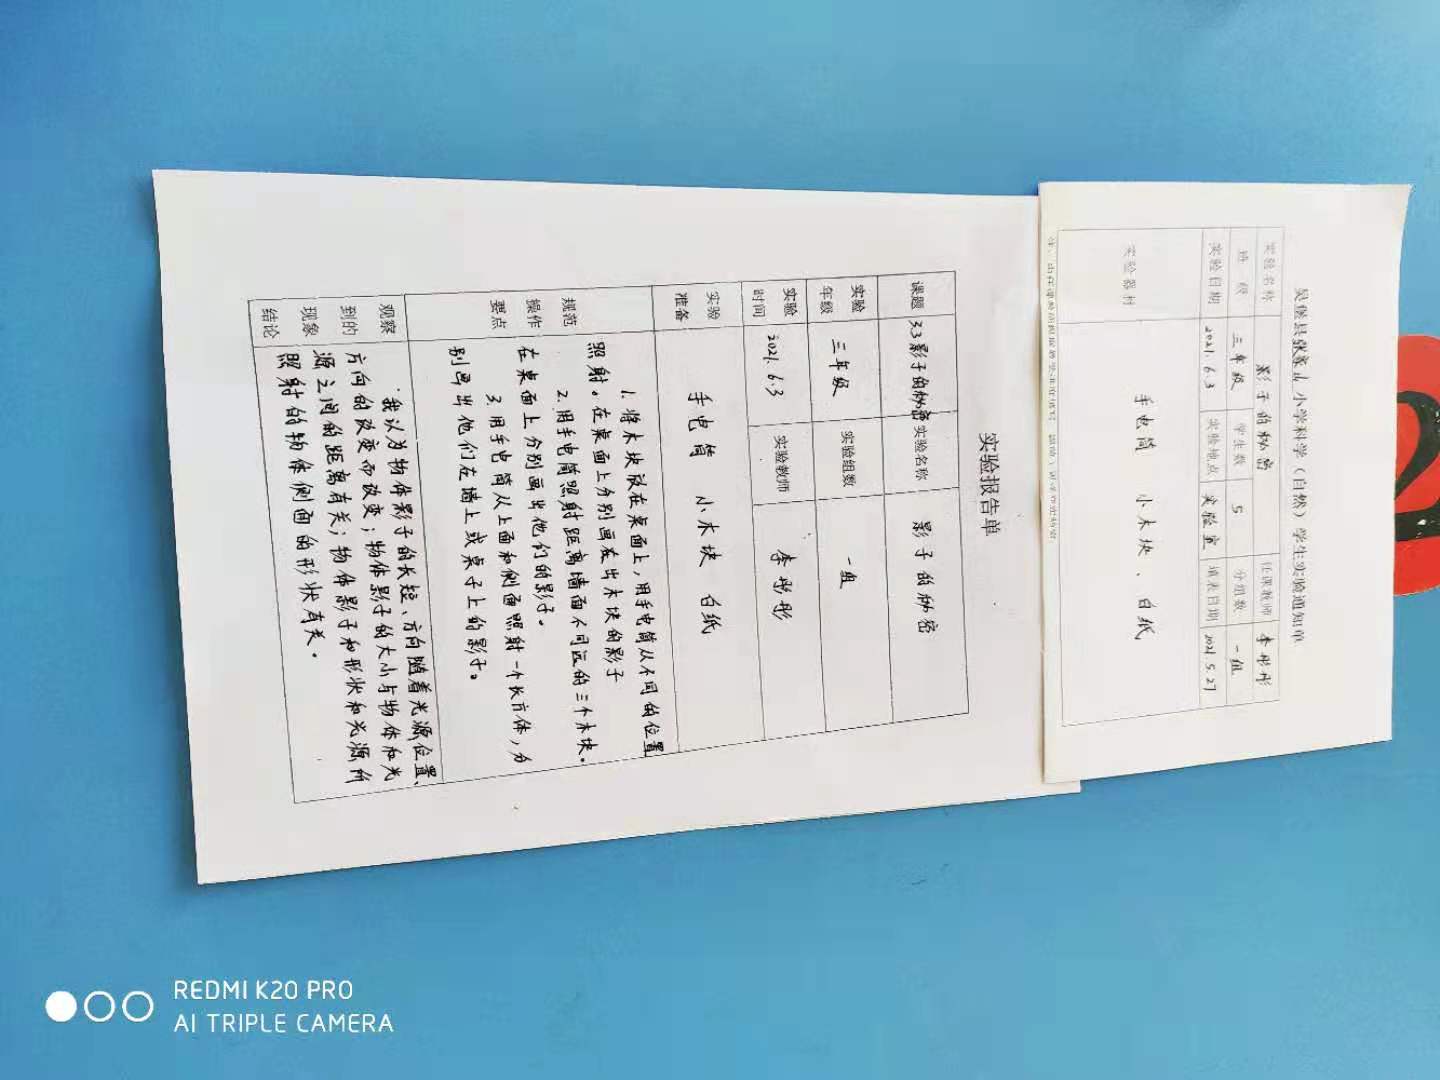 吴堡县张家山小学科学（自然）学生实验通知单
实验名称 影子的秘密 任课教师 李彤彤
班 级 三年级 学生数 5 分组数 一组
实验日期 2021.6.3 实验地点 实验室 填表日期 2021.5.27
实验器材 手电筒 小木块、白纸
实验报告单
课题 3.3影子的秘密 实验名称 影子的秘密
实验年级 三年级 实验组数 一组
实验时间 2021.6.3 实验教师 李彤彤
实验准备 手电筒 小木块 白纸
规范操作要点
1.将木块放在桌面上，用手电筒从不同的位置
照射。在桌面上分别画出木块的影子
2.用手电筒照射距离墙面不同远的三个木块。
在桌面上分别画出他们的影子。
3.用手电筒从上面和侧面照射一个长方体，分
别画出他们在墙上或桌子上的影子。
观察到的现象结论
我认为物体影子的长短、方向随着光源位置、
方向的改变而改变；物体影子的大小与物体和光
源之间的距离有关；物体影子和形状和光源所
照射的物体侧面的形状有关。
2
REDMI K20 PRO
AI TRIPLE CAMERA